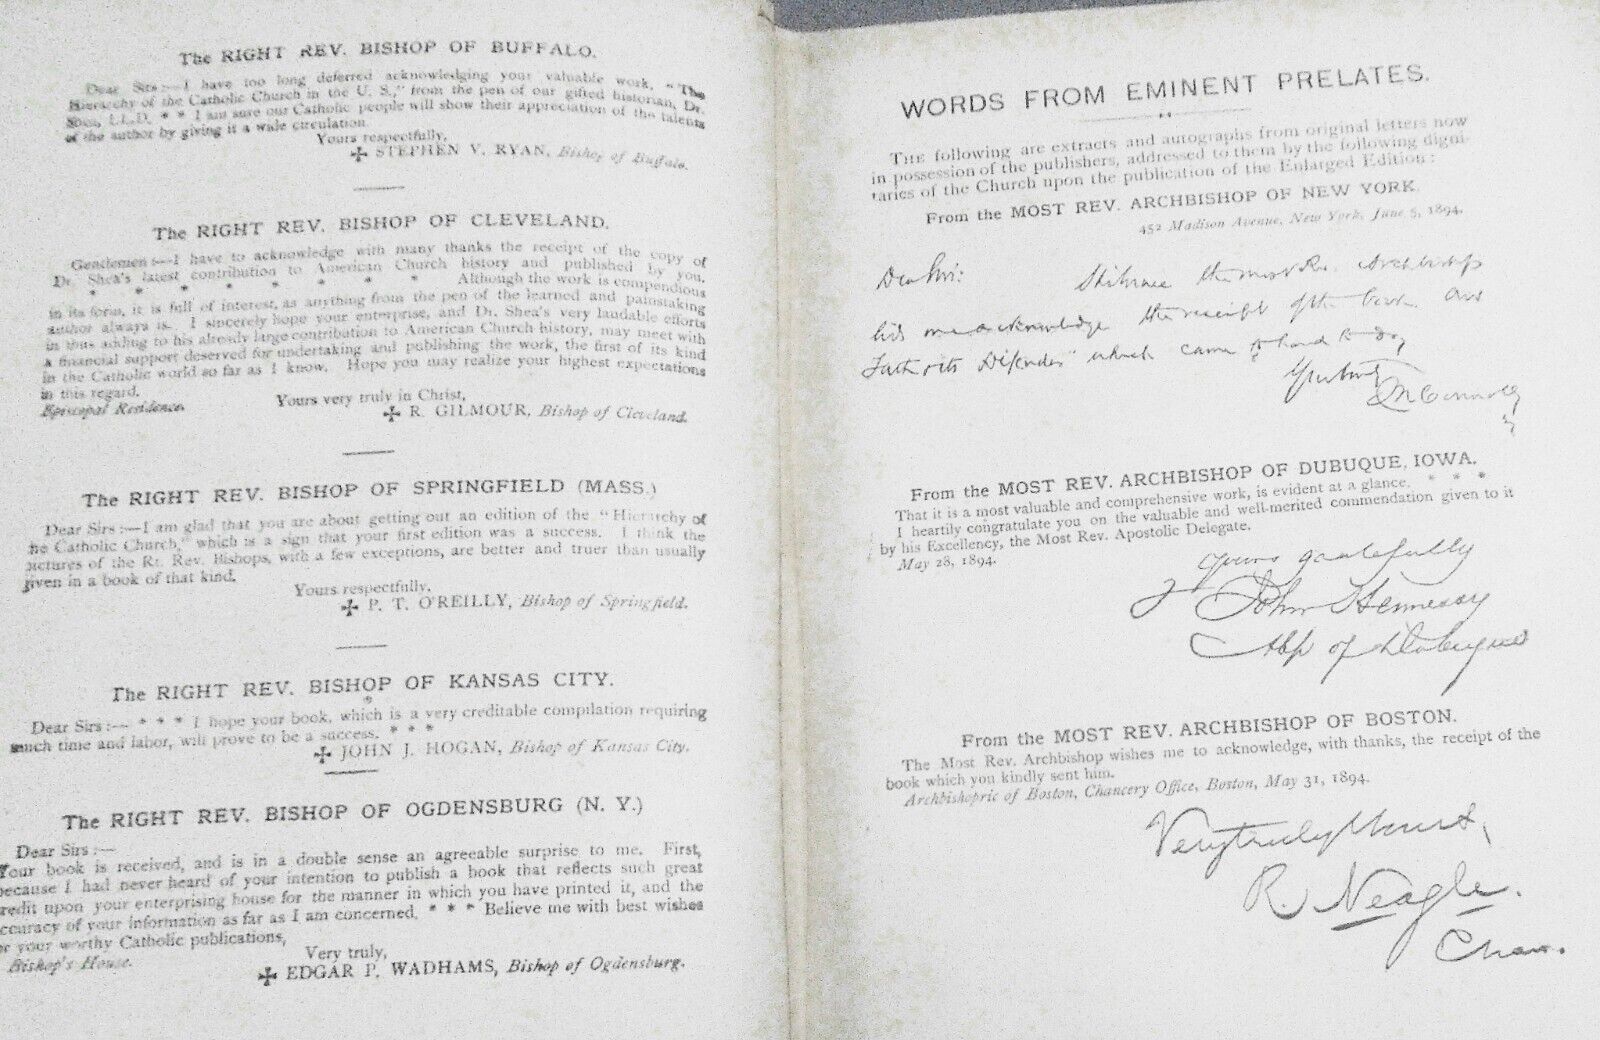 The RIGHT REV. BISHOP OF BUFFALO.
Dear Sirs:—I have too long deferred acknowledging your valuable work, "The
Hierarchy of the Catholic Church in the U. S.," from the pen of our gifted historian, Dr.
Shea, LL.D. * * I am sure our Catholic people will show their appreciation of the talents
of the author by giving it a wide circulation.
Yours respectfully,
✠ STEPHEN V. RYAN, Bishop of Buffalo.
The RIGHT REV. BISHOP OF CLEVELAND.
Gentlemen:—I have to acknowledge with many thanks the receipt of the copy of
Dr. Shea's latest contribution to American Church history and published by you.
* * * * * * * * Although the work is compendious
in its form, it is full of interest, as anything from the pen of the learned and painstaking
author always is. I sincerely hope your enterprise, and Dr. Shea's very laudable efforts
in thus adding to his already large contribution to American Church history, may meet with
a financial support deserved for undertaking and publishing the work, the first of its kind
in the Catholic world so far as I know. Hope you may realize your highest expectations
in this regard.
Yours very truly in Christ,
Episcopal Residence.
✠ R. GILMOUR, Bishop of Cleveland.
The RIGHT REV. BISHOP OF SPRINGFIELD (MASS.)
Dear Sirs:—I am glad that you are about getting out an edition of the "Hierarchy of
he Catholic Church," which is a sign that your first edition was a success. I think the
ictures of the Rt. Rev. Bishops, with a few exceptions, are better and truer than usually
given in a book of that kind.
Yours respectfully,
✠ P. T. O'REILLY, Bishop of Springfield.
The RIGHT REV. BISHOP OF KANSAS CITY.
Dear Sirs:— * * * I hope your book, which is a very creditable compilation requiring
much time and labor, will prove to be a success. * * *
✠ JOHN J. HOGAN, Bishop of Kansas City.
The RIGHT REV. BISHOP OF OGDENSBURG (N. Y.)
Dear Sirs:—
Your book is received, and is in a double sense an agreeable surprise to me. First,
because I had never heard of your intention to publish a book that reflects such great
redit upon your enterprising house for the manner in which you have printed it, and the
ccuracy of your information as far as I am concerned. * * * Believe me with best wishes
or your worthy Catholic publications,
Very truly,
Bishop's House.
✠ EDGAR P. WADHAMS, Bishop of Ogdensburg.
WORDS FROM EMINENT PRELATES.
THE following are extracts and autographs from original letters now
in possession of the publishers, addressed to them by the following digni-
taries of the Church upon the publication of the Enlarged Edition:
From the MOST REV. ARCHBISHOP OF NEW YORK.
452 Madison Avenue, New York, June 5, 1894.
Dear Sir: the most Rev. Archbishop
bids me acknowledge the receipt of the book. Our
Faith & its Defenders" which came to hand to day
Yours truly
From the MOST REV. ARCHBISHOP OF DUBUQUE, IOWA.
That it is a most valuable and comprehensive work, is evident at a glance. * * *
I heartily congratulate you on the valuable and well-merited commendation given to it
by his Excellency, the Most Rev. Apostolic Delegate.
May 28, 1894.
Yours gratefully
John Hennessy
Abp of Dubuque
From the MOST REV. ARCHBISHOP OF BOSTON.
The Most Rev. Archbishop wishes me to acknowledge, with thanks, the receipt of the
book which you kindly sent him.
Archbishopric of Boston, Chancery Office, Boston, May 31, 1894.
Very truly yours,
R. Neagle.
Chan.